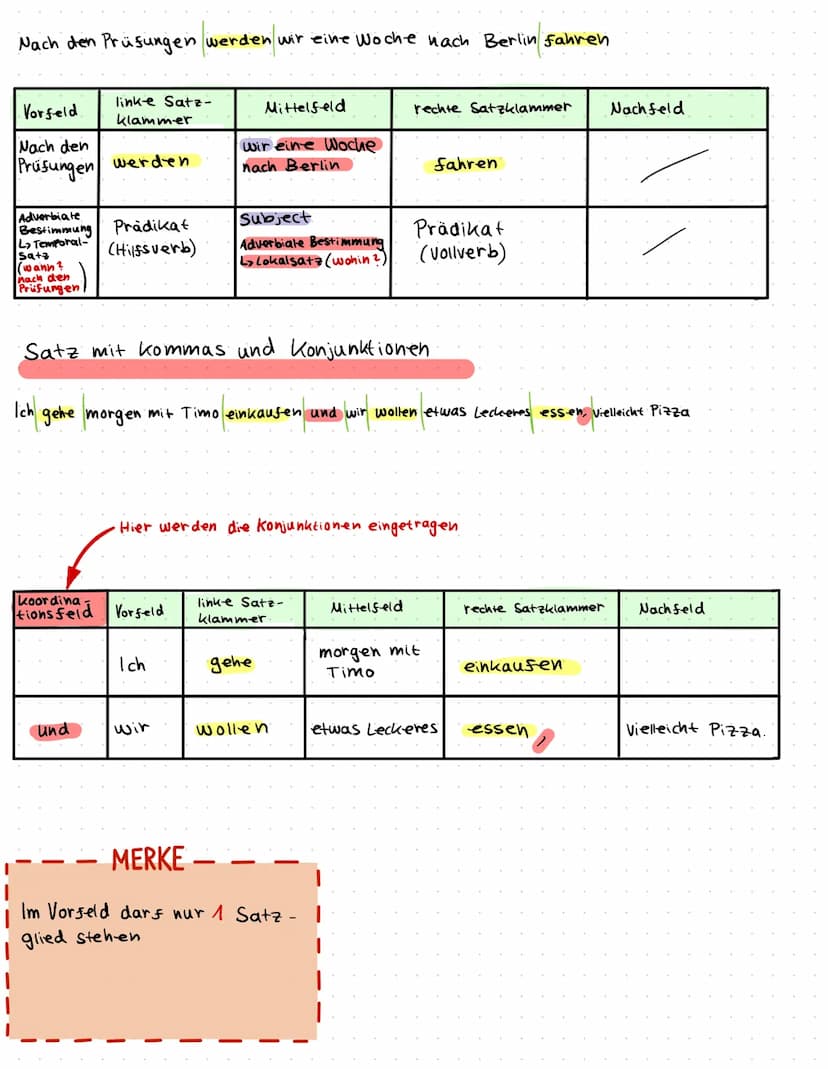 Nach den Prüfungen werden wir eine Woche nach Berlin fahren
Vorfeld
linke Satz-
klammer
Mittelfeld
rechte Satzklammer
Nachfeld
Nach den
Prüfungen
werden
wir eine Woche
nach Berlin
fahren
Adverbiale
Bestimmung
↳ Temporal-
satz
(wann?
nach den
Prüfungen)
Prädikat
(Hilfsverb)
Subject
Adverbiale Bestimmung
↳ Lokalsatz (wohin?)
Prädikat
(Vollverb)
Satz mit Kommas und Konjunktionen
Ich gehe morgen mit Timo einkaufen und wir wollen etwas Leckeres essen, vielleicht Pizza
Hier werden die Konjunktionen eingetragen
Koordina-
tionsfeld
Vorfeld
linke Satz-
klammer
Mittelfeld
rechte Satzklammer
Nachfeld
Ich
gehe
morgen mit
Timo
einkaufen
und
wir
wollen
etwas Leckeres
essen,
vielleicht Pizza.
MERKE
Im Vorfeld darf nur 1 Satz-
glied stehen